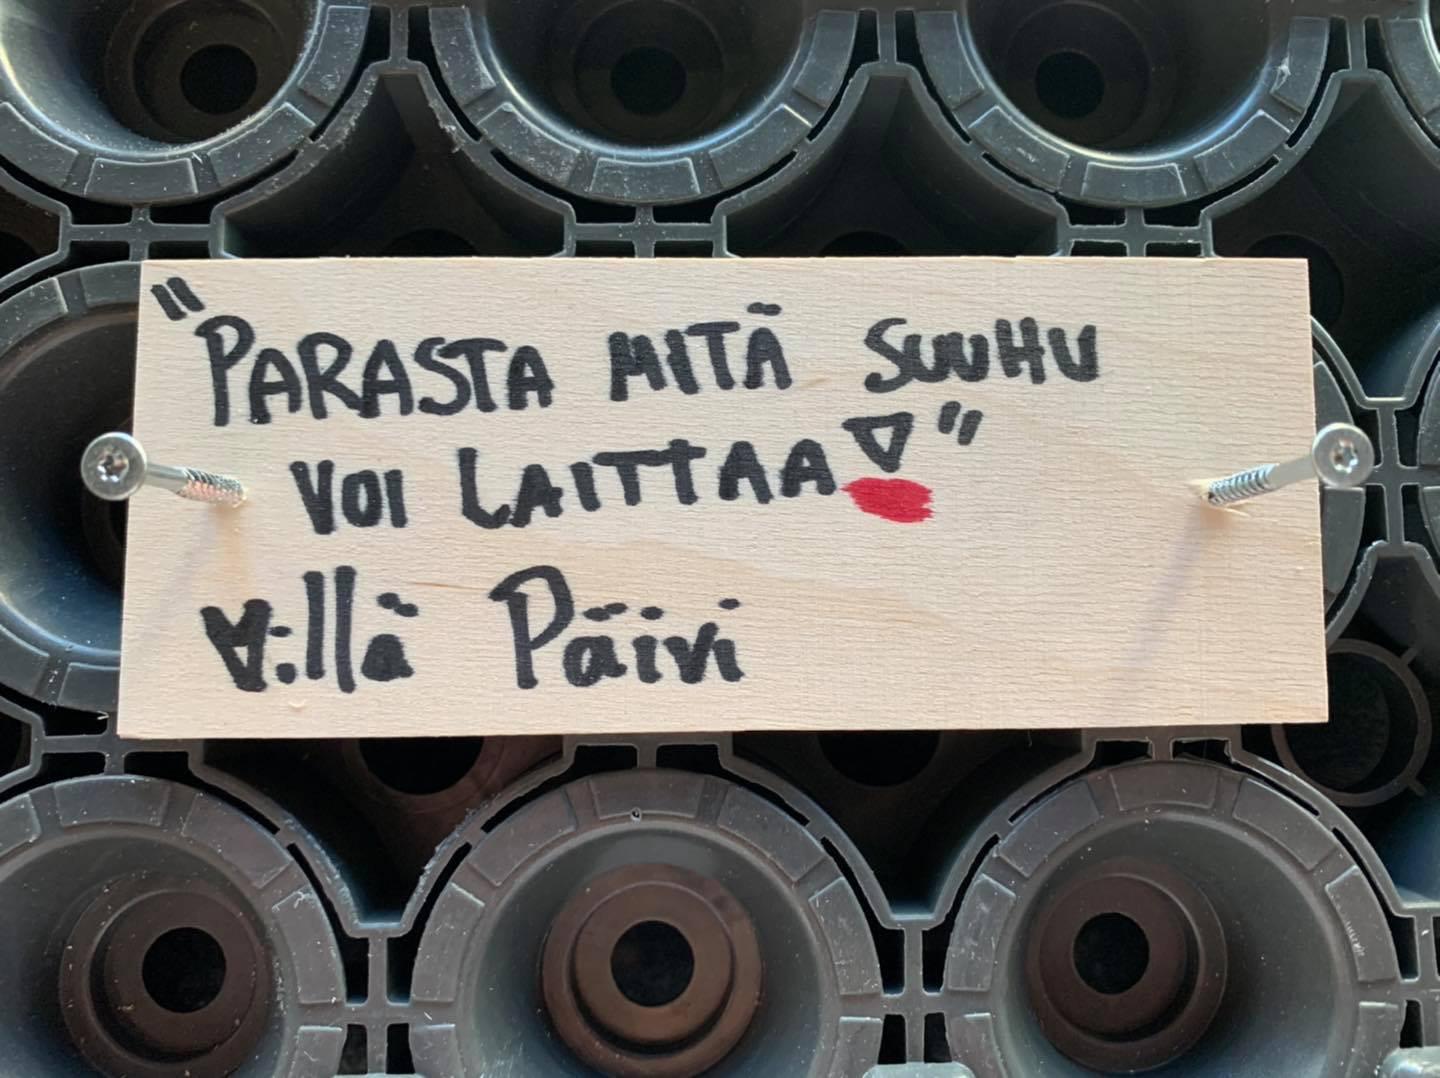 "PARASTA MITÄ SUUHU
VOI LAITTAA"
Villä Päivi